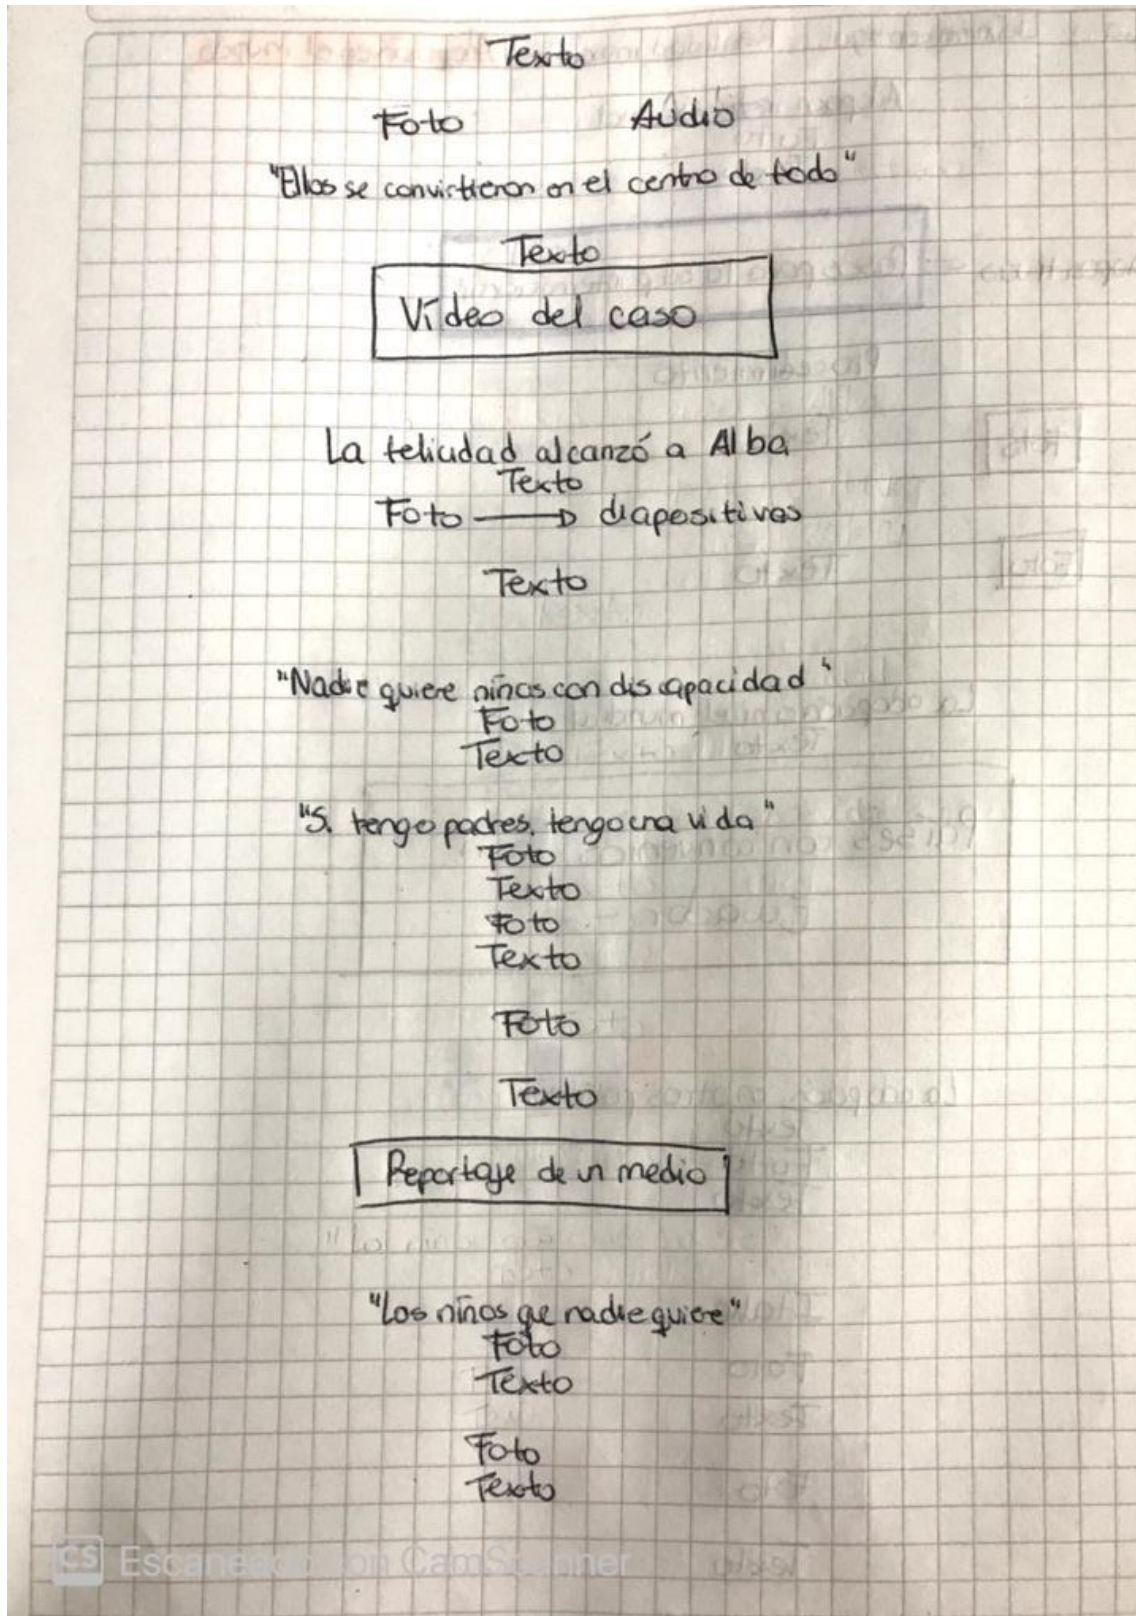 Texto
Foto Audio
"Ellos se convirtieron en el centro de todo"
Texto
Vídeo del caso
La felicidad alcanzó a Alba
Texto
Foto → diapositivas
Texto
"Nadie quiere niños con discapacidad"
Foto
Texto
"Si tengo padres, tengo una vida"
Foto
Texto
Foto
Texto
Foto
Texto
Reportaje de un medio
"Los niños que nadie quiere"
Foto
Texto
Foto
Texto
CS Escaneado con CamScanner